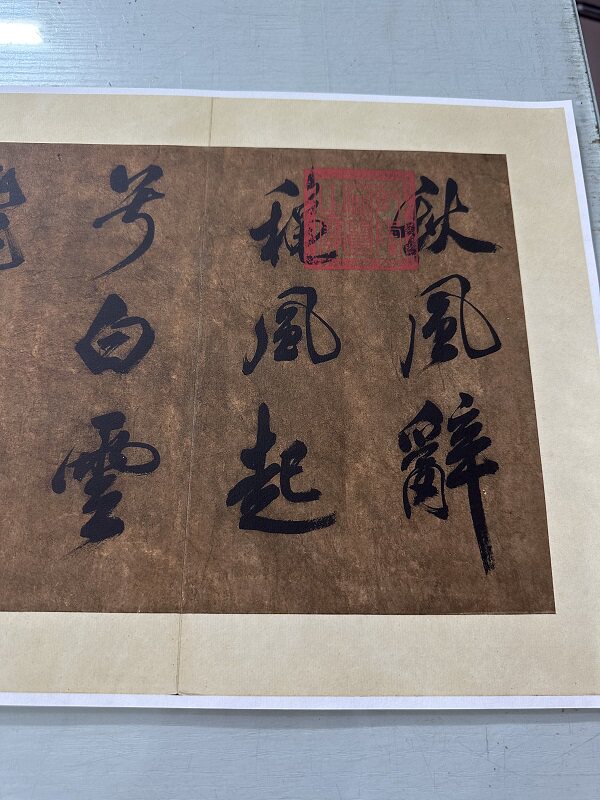 秋風辭
穐風起
兮白雲